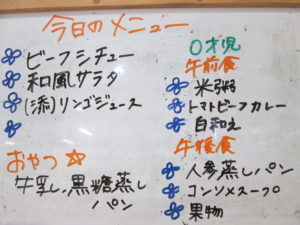 今日のメニュー
ビーフシチュー
和風サラダ
(添)リンゴジュース
おやつ
牛乳、黒糖蒸し
パン
0才児
午前食
米粥
トマトビーフカレー
白和え
午後食
人参蒸しパン
コンソメスープ
果物